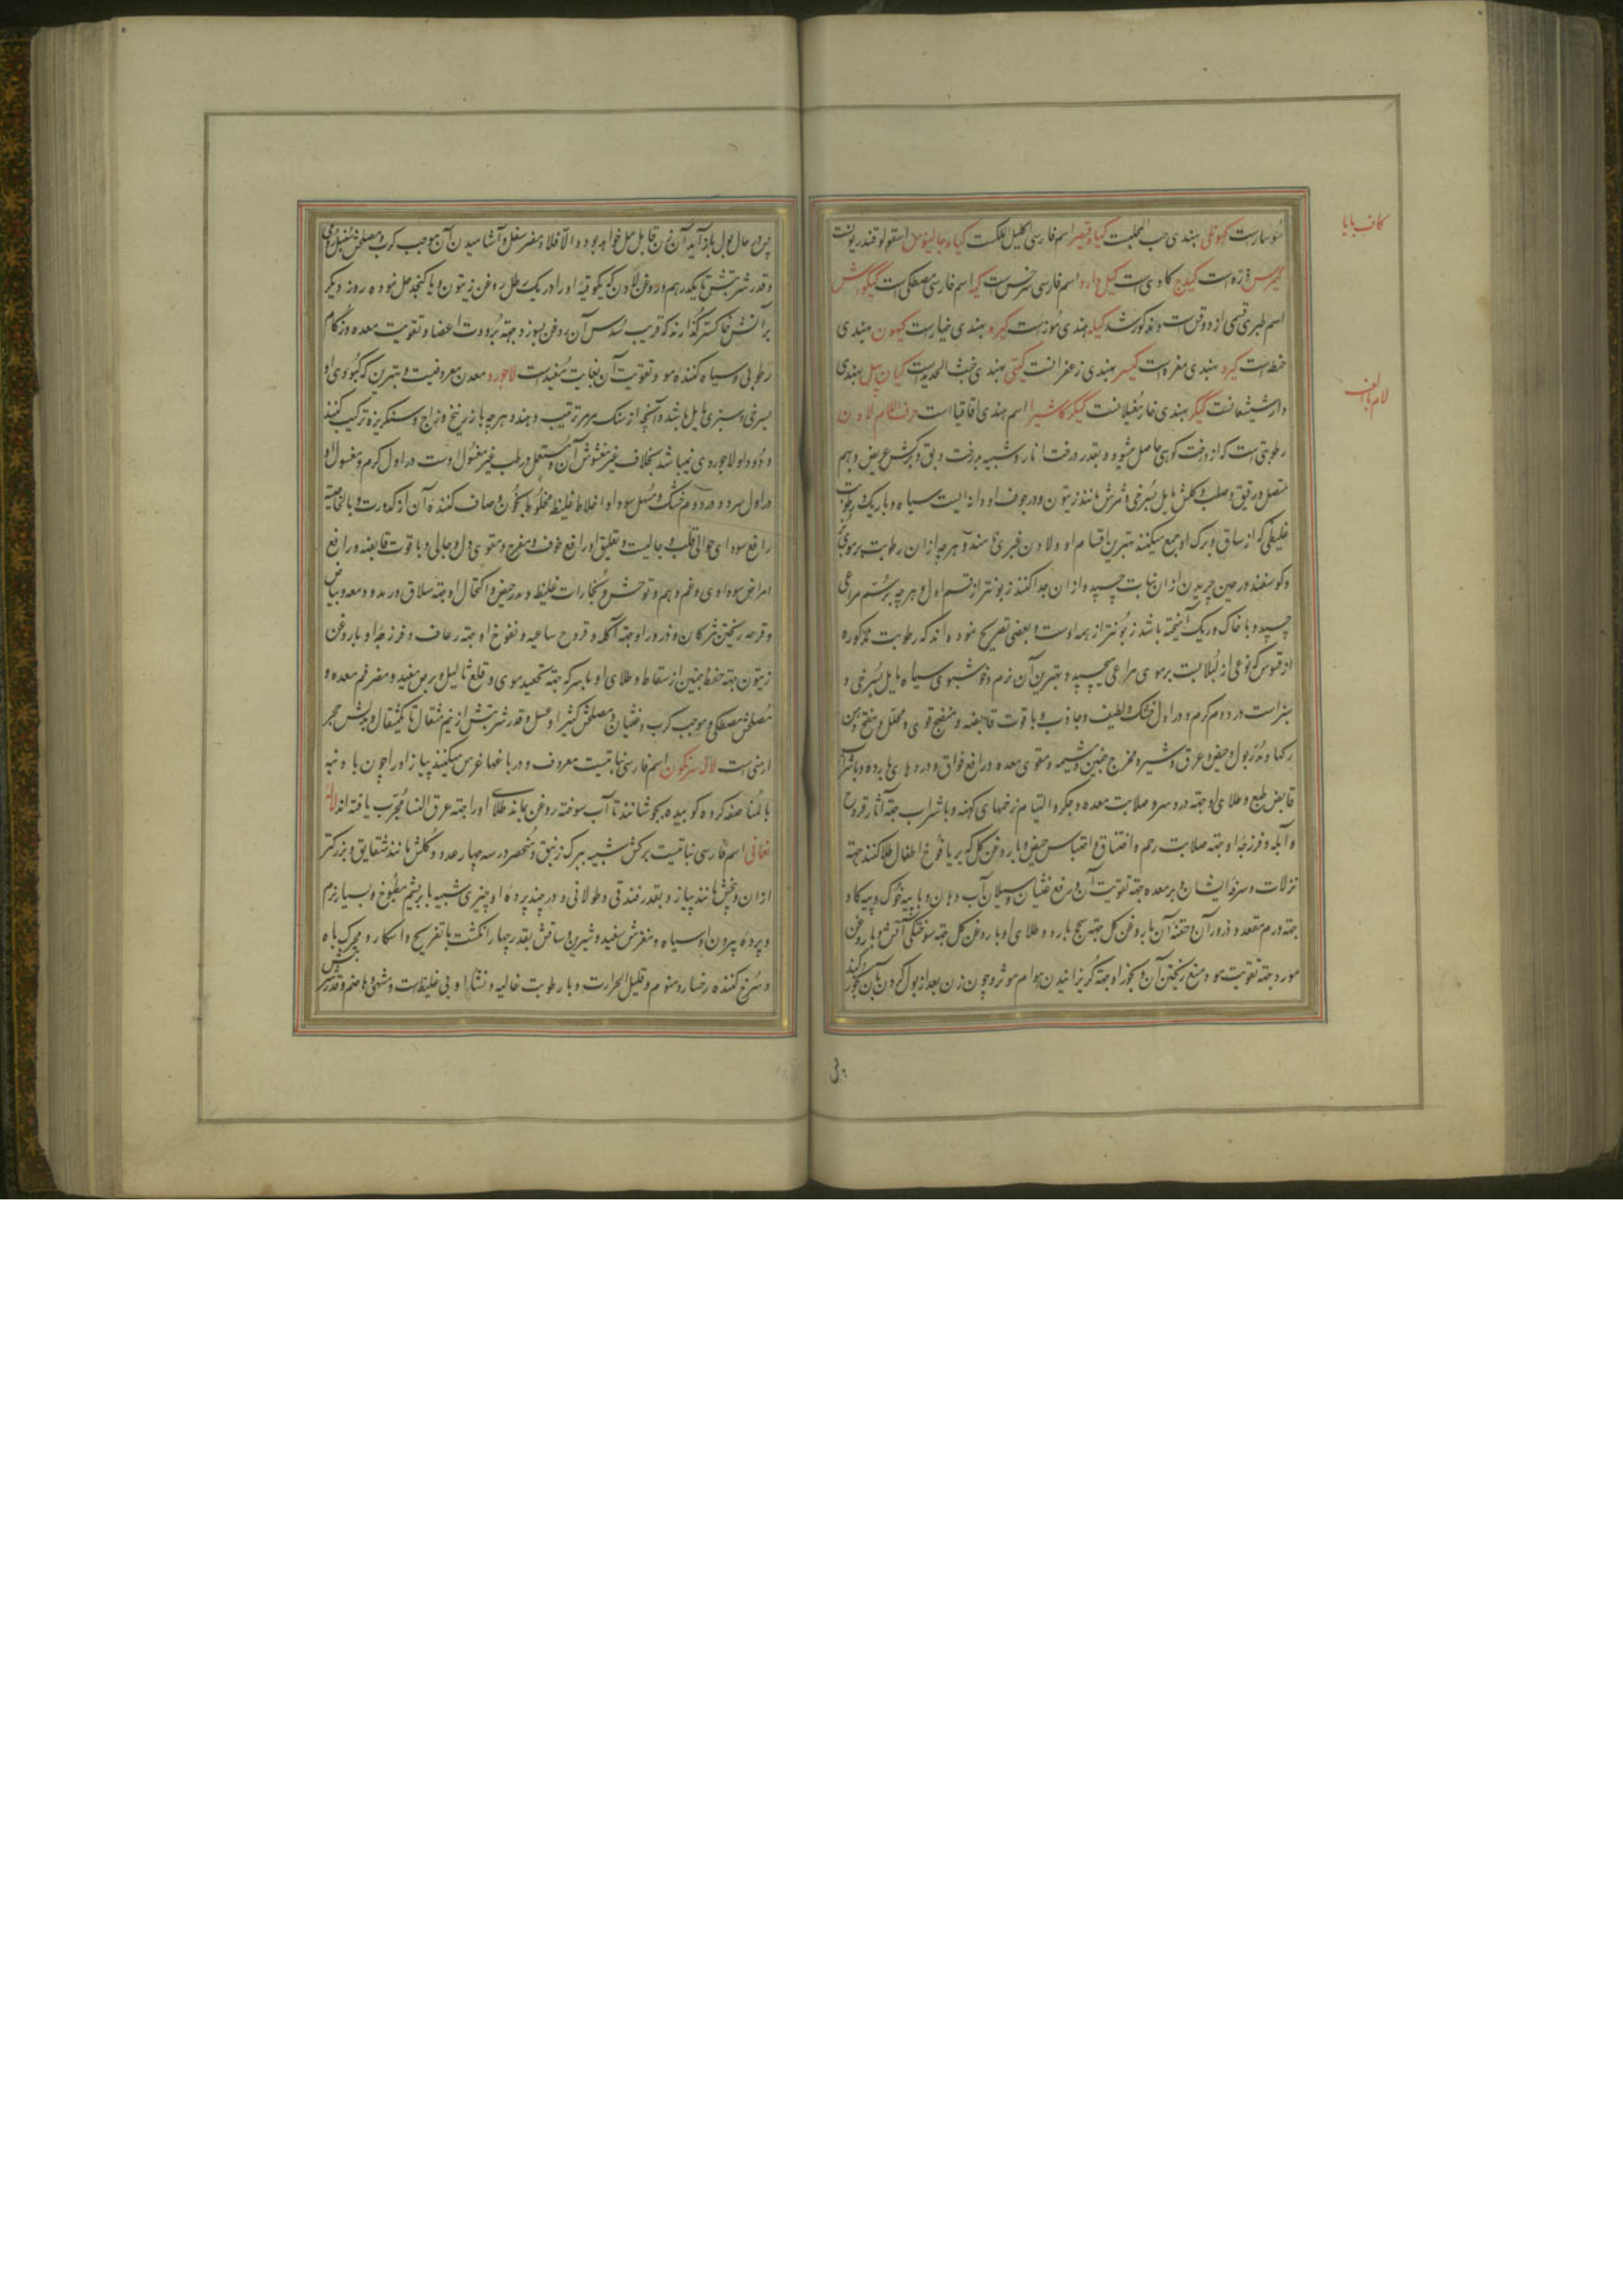 کاف با یا
سوسمارست کهونکلی بهندی حب المحلبست کیاه قیصر اسم فارسی اکلیل الملکست کیاه جالینوس اسقولوقندریونست
کیرس ذره است کیلج کادی است کیل دارو اسم فارسی سرخس است کیه اسم فارسی مصطکی است کیکوش
اسم طبری قسمی از دوقس است و مذکور شد کیله بهندی موزست کیره بهندی خیارست کیهون بهندی
حنطه است کیرو بهندی مغره است کیسر بهندی زعفرانست کیتی بهندی خبث الحدیدست کیان پیل بهندی
لام با الف
دارشیشعانست کیکر بهندی خار مغیلانست کیکر کاشیرا اسم هندی اقاقیا است حرف اللام لادن
رطوبتی است که از درخت کوهی حاصل میشود و بقدر درخت انار و شبیه بدرخت دبق و برکش عریض و بهم
متصل و رقیق و صلب و کلش مایل بسرخی و ثمرش مانند زیتون و در جوف او دانه ایست سیاه و باریک و رطوبت
غلیظی که از ساق و برک او جمع میکنند بهترین اقسام او و لادن عنبری نامند و هر چه از ان رطوبت بر موی بز
و کوسفند در حین چریدن از ان نبات چسپیده و از ان جدا کنند زبونتر از قسم اول و هر چه بر سم مراعی
چسپیده و با خاک و ریک آمیخته باشد زبونتر از همه اوست و بعضی تصریح نموده اند که رطوبت مذکوره
از قسوس که نوعی از لبلابست بر موی مراعی میچسپد و بهترین آن نرم و خوشبوی سیاه مایل بسرخی و
سبز است در دوم کرم و در اول خشک و لطیف و جاذب و با قوت قابضه و منضج قوی و محلل و مفتح دهن
رکها و مدر بول و حیض و عرق و شیر و مخرج جنین و مشیمه و مقوی معده و رافع فواق و دردهای بارده و با شراب
قابض طبع و طلای او جهته درد سر و صلابت معده و جکر و التیام زخمهای کهنه و با شراب جهته آثار قروح
و آبله و فرزجه او جهته صلابت رحم و اختناق و احتباس حیض و با روغن کل که بر یافوخ اطفال طلا کنند جهته
نزلات و سرفه ایشان و بر معده جهته تقویت آن و رفع غثیان و سیلان آب دهان و با پیه خوک و پیه کاو
جهته ورم مقعد و ذرور آن و حقنه آن با روغن کل جهته سحج بارد و طلای او با روغن کل جهته سوختکی آتش و با روغن
مورد جهته تقویت مو و منع ریختن آن و بخور او جهته کریزانیدن هوام موثر و چون زن بعد از بول کردن بآن بخور کند
پس در حال بول باز آید آن زن قابل حمل خواهد بود و الا فلا و مضر سفل و آشامیدن آن موجب کرب و مصلحش سنبل رومی
و قدر شربتش تا یکدرهم و روغن لادن که یکوقیه او را در یک رطل روغن زیتون و یا کنجد حل نموده روز دیکر
بر آتش خاکستر کذارند که قریب سدس آن روغن بسوزد جهته برودت اعضا و تقویت معده و زکام
رطوبی و سیاه کننده مو و تقویت آن بغایت مفیدست لاجورد معدن معروفیست و بهترین که کبودی او
بسرخی و سبزی مایل باشد و آنچه از سنک مرمر ترتیب دهند و هر چه با زرنیخ و زاج و سنکریزه ترکیب کنند
و دود او لاجوردی نمیباشد بخلاف غیر مغشوش آن و مستعمل در طب غیر مغسول اوست در اول کرم و مغسول او
در اول سرد و در دوم خشک و مسهل سودا و اخلاط غلیظ مخلوط بخون و صاف کننده آن از کدورت و بالخاصیته
رافع سودای حوالی قلب و جالیست و تعلیق او رافع خوف و مفرح و مقوی دل و جالی و با قوت قابضه و رافع
امراض سوداوی و غم و هم و توحش و بخارات غلیظ و مدر حیض و اکتحال او جهته سلاق و رمد و دمعه و بیاض
و قرحه ریختن مژکان و ذرور او جهته آکله و قروح ساعیه و نفوخ او جهته رعاف و فرزجه او با روغن
زیتون جهته حفظ جنین از سقاط و طلای او با سرکه جهته تجعید موی و قلع ثالیل و برص مفید و مضر فم معده و
مصلحش مصطکی و موجب کرب و غثیان و مصلحش کتیرا و عسل و قدر شربتش از نیم مثقال تا یکمثقال و بدلش حجر
ارمنی است لاله سرنکون اسم فارسی نباتیست معروف و در باغها غرس میکنند پیاز او را چون با دنبه
بالمناصفه کرده کوبیده بجوشانند تا آب سوخته روغن بماند طلای او را جهته عرق النسا مجرب یافته اند لاله
نعمانی اسم فارسی نباتیست برکش شبیه ببرک زنبق و منحصر در سه چهار عدد و کلش مانند شقایق و بزرکتر
از ان و بیخش مانند پیاز و بقدر فندقی و طولانی و در چند پرده او چیزی شبیه بابریشم مطبوخ و بسیار نرم
و پرده بیرون او سیاه و مغزش سفید و شیرین و ساقش بقدر چهار انکشت با تفریح و اسکار و محرک باه
و سرخ کننده رخسار و منوم و قلیل الحرارت و با رطوبت غالیه و نشاه او بی غلیظ است و مشهی و هاضم و قدر شربتش